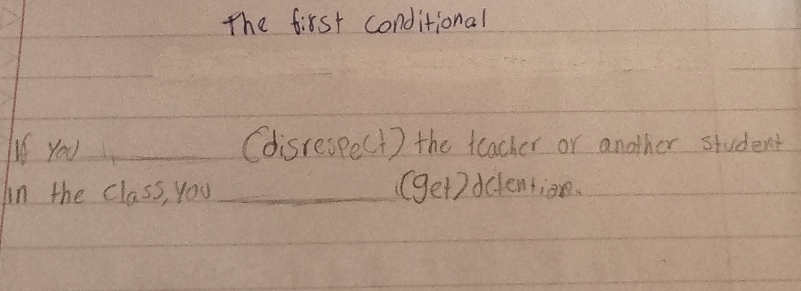 The first conditional
If you ________ (disrespect) the teacher or another student
in the class, you ____________ (get) detention.